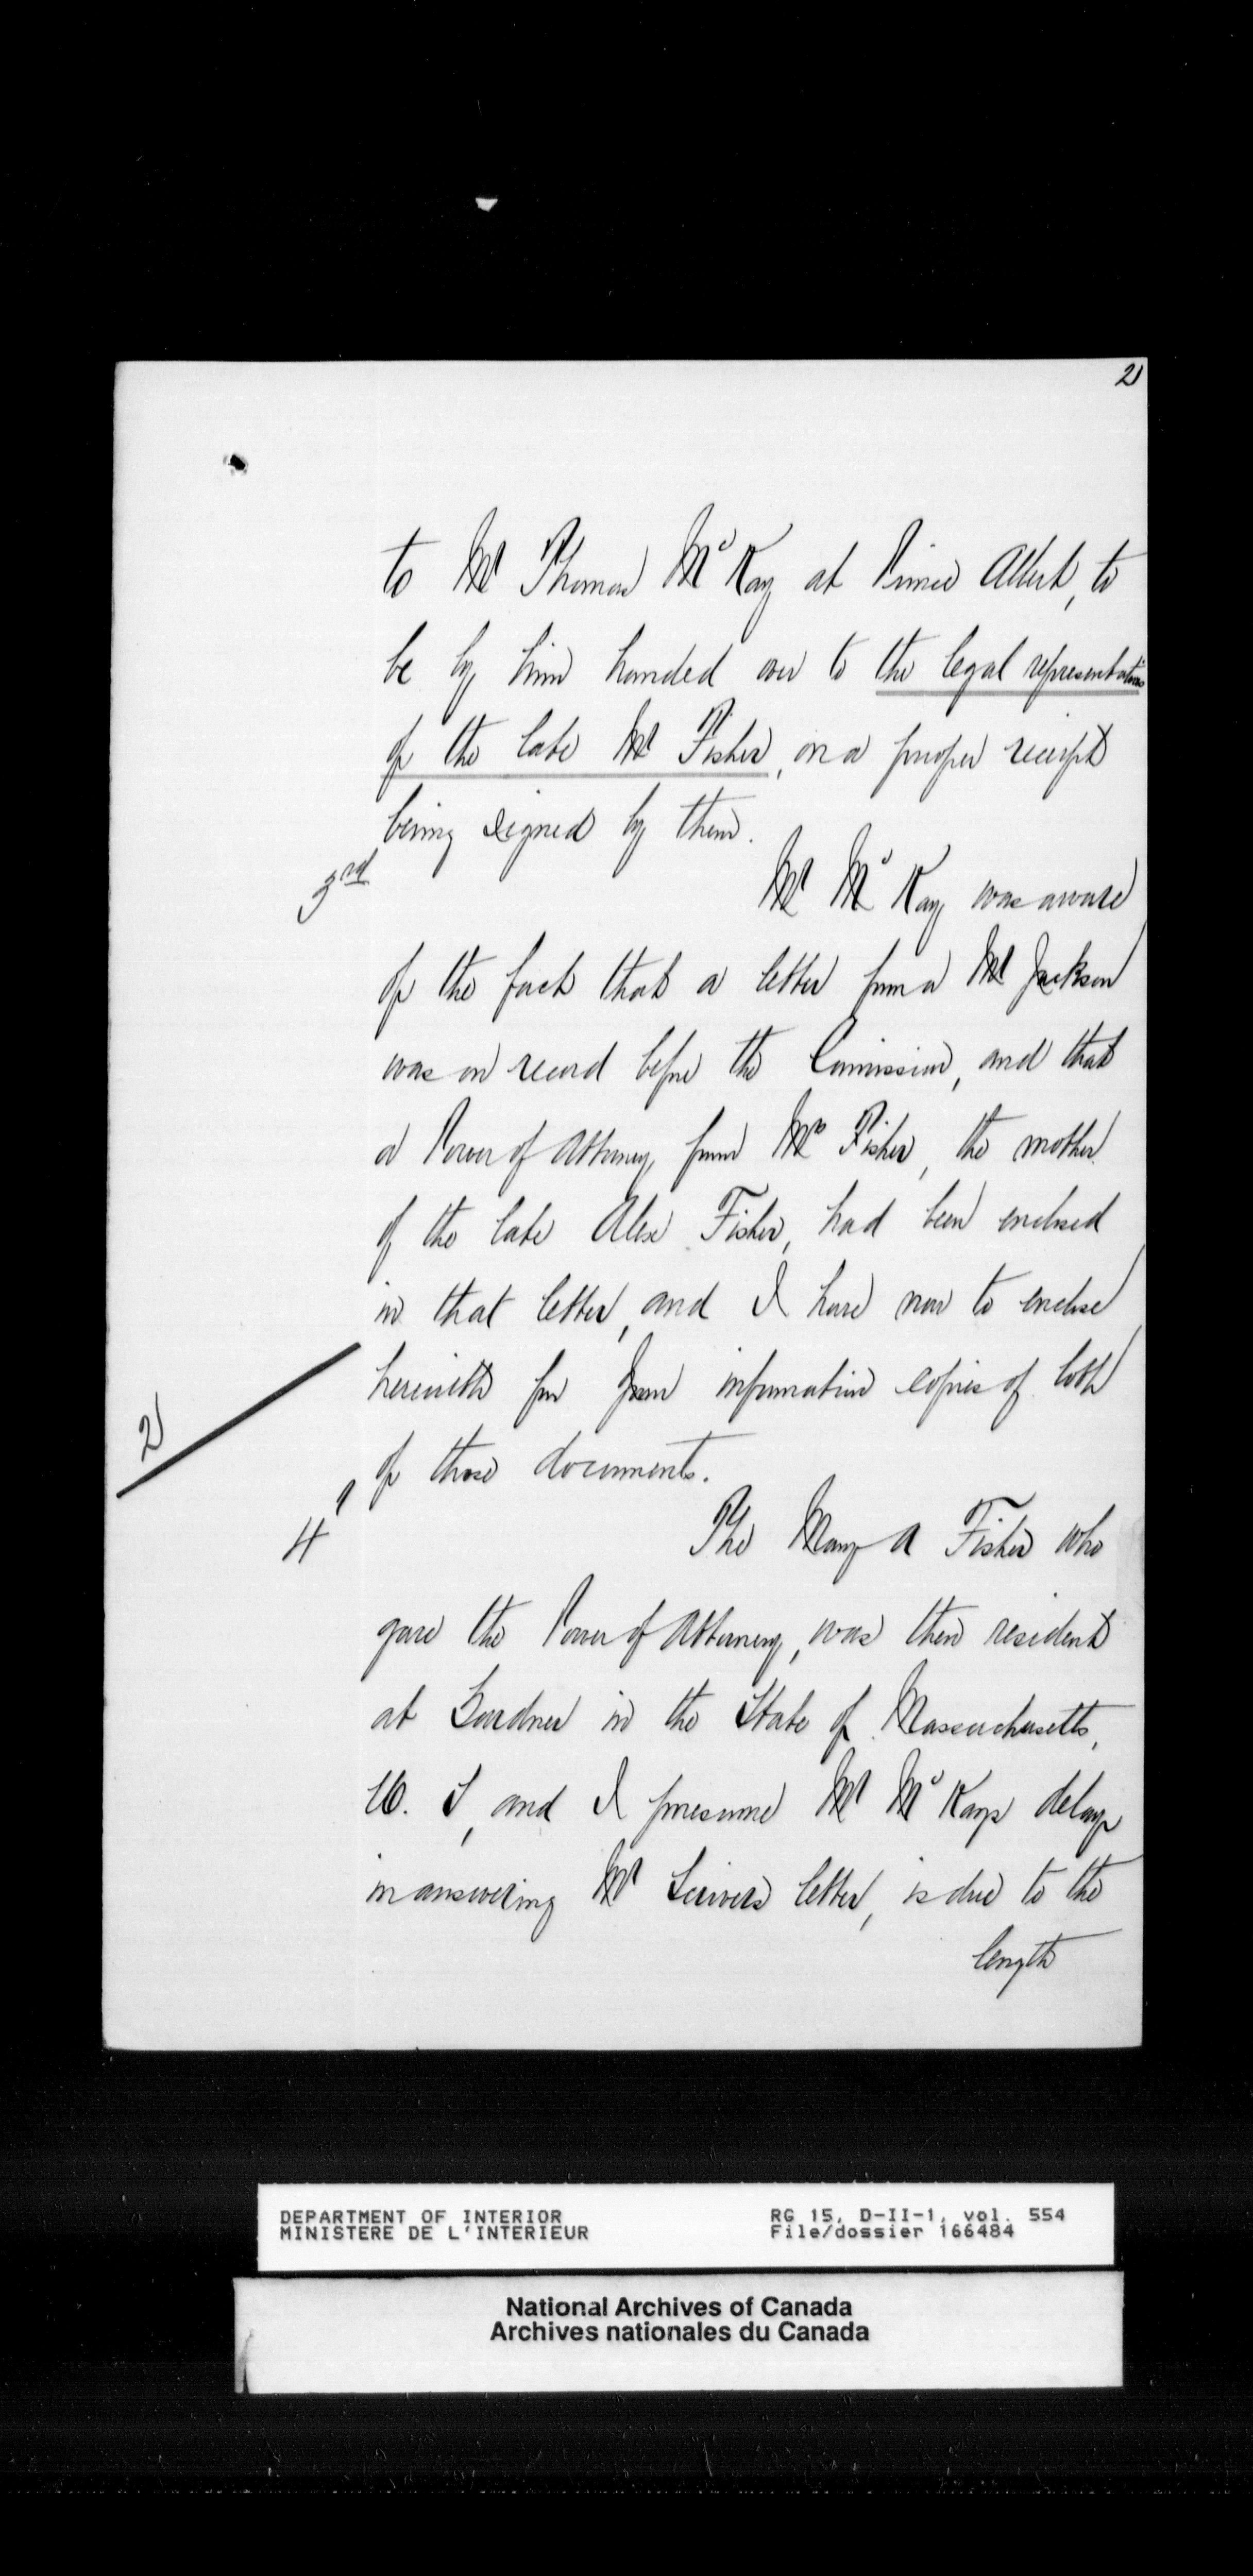 2
to Mr Thomas McKay at Prince Albert, to
be by him handed over to the legal representatives
of the late Mr Fisher, on a proper receipt
being signed by them.
3rd
Mr McKay was aware
of the fact that a letter from a Mr Jackson
was on record before the Commission, and that
a Power of Attorney from Mrs Fisher, the mother
of the late Alex Fisher, had been enclosed
in that letter, and I have now to enclose
herewith for your information copies of both
2
of those documents.
4
The Mary A Fisher who
gave the Power of Attorney, was then resident
at Gardner in the State of Massachusetts,
U. S, and I presume Mr McKays delay
in answering Mr letter, is due to the
length
DEPARTMENT OF INTERIOR
MINISTERE DE L'INTERIEUR
RG 15, D-II-1, vol. 554
File/dossier 166484
National Archives of Canada
Archives nationales du Canada